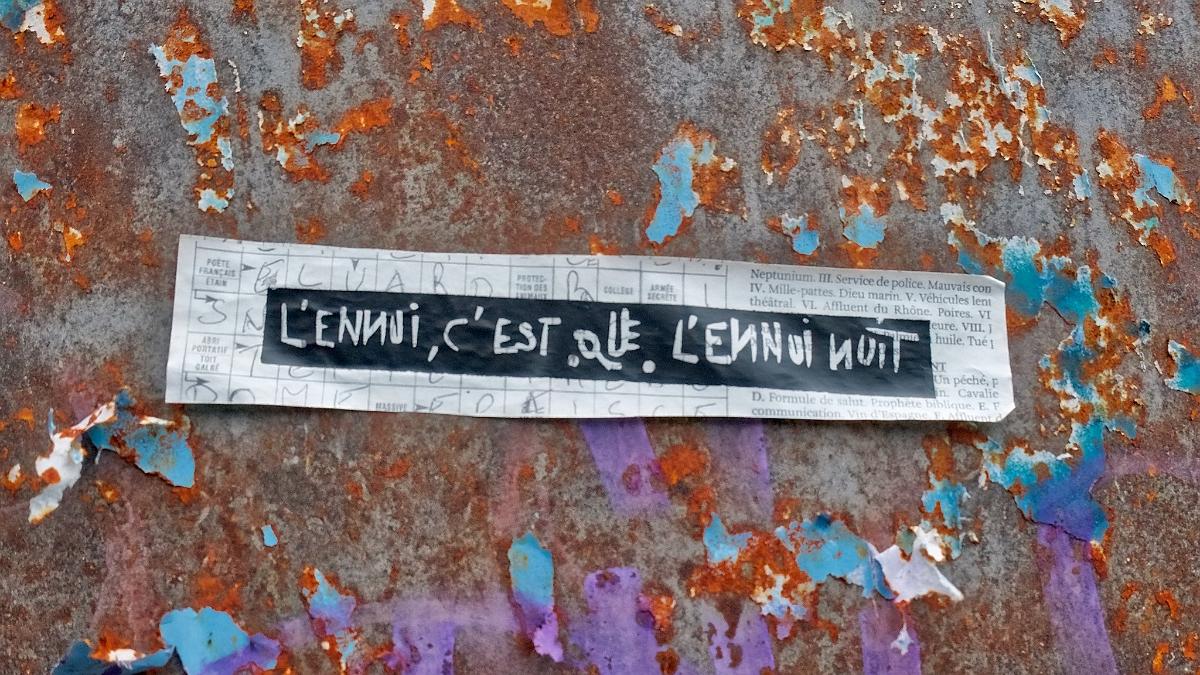 POÈTE
FRANÇAIS
ÉTAIN
L U A R D
PROTEC-
TION DES
ANIMAUX
COLLÈGE
ARMÉE
SECRÈTE
Neptunium. III. Service de police. Mauvais con
IV. Mille-pattes. Dieu marin. V. Véhicules lent
théâtral. VI. Affluent du Rhône. Poires. VI
eure. VIII. J
huile. Tué j
L'ENNUI, C'EST QUE L'ENNUI NUIT
ABRI
PORTATIF
TOIT
GALBÉ
NT
Un péché, p
in. Cavalie
MASSIVE
D. Formule de salut. Prophète biblique. E. F
communication. Vin d'Espagne. F. Affluent d